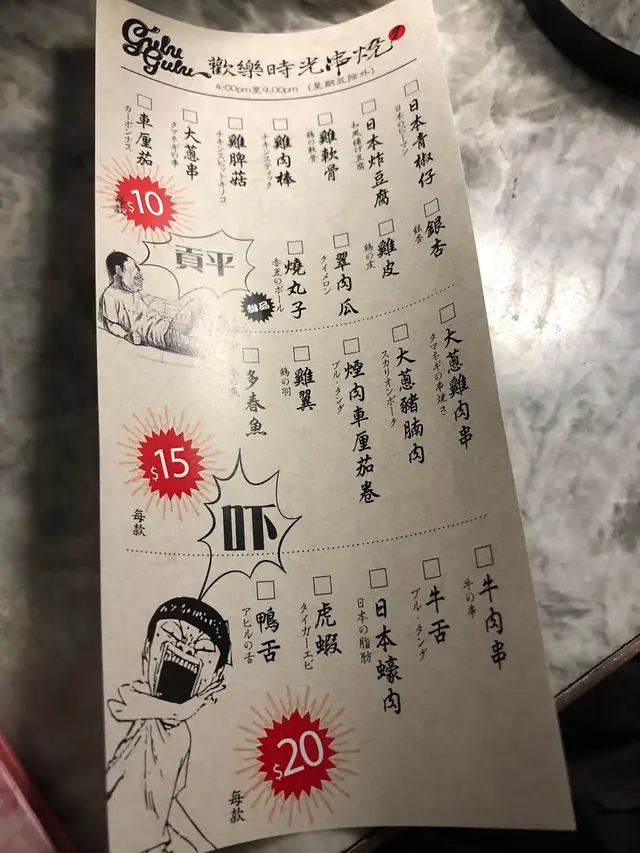 Gulu Gulu
歡樂時光串燒
4:00pm至9:00pm (星期五除外)
日本青椒仔
日本のピーマン
日本炸豆腐
和風揚げ豆腐
雞軟骨
鶏の軟骨
雞肉棒
チキンスティック
雞脾菇
チキンスピットキノコ
大蔥串
タマネギの串
車厘茄
カーボンナス
每款
$10
銀杏
銀杏
雞皮
鶏の皮
翠肉瓜
タイメロン
燒丸子
赤豆のボール
甜品
貢平
大蔥雞肉串
タマネギの串焼き
大蔥豬腩肉
スカリオンポーク
煙肉車厘茄卷
ブル・タング
雞翼
鶏の羽
多春魚
$15
每款
吓
牛肉串
牛の串
牛舌
ブル・タング
日本蠔肉
日本の脂肪
虎蝦
タイガーエビ
鴨舌
アヒルの舌
$20
每款